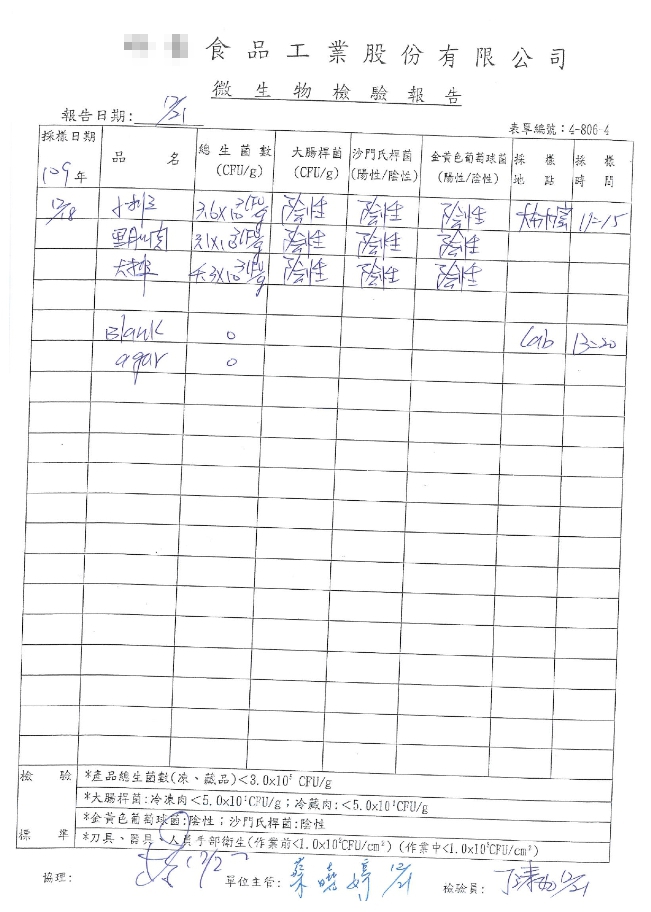 食品工業股份有限公司
微生物檢驗報告
報告日期: 12/21
表單編號：4-806-4
採樣日期 品名 總生菌數 (CFU/g) 大腸桿菌 (CFU/g) 沙門氏桿菌 (陽性/陰性) 金黃色葡萄球菌 (陽性/陰性) 採樣地點 採樣時間
109年
12/18 小利 3.6x10³CFU/g 陰性 陰性 陰性 11=15
3.1x10³CFU/g 陰性 陰性 陰性
大排 4.3x10³CFU/g 陰性 陰性 陰性
Blank 0 Lab 13=20
agar 0
檢驗標準
*產品總生菌數(凍、藏品)<3.0x10⁶ CFU/g
*大腸桿菌:冷凍肉<5.0x10¹CFU/g；冷藏肉:<5.0x10¹CFU/g
*金黃色葡萄球菌:陰性；沙門氏桿菌:陰性
*刀具、器具、人員手部衛生(作業前<1.0x10⁰CFU/cm²) (作業中<1.0x10⁵CFU/cm²)
協理: 12/22 單位主管: 蔡曉婷 12/21 檢驗員: 12/21